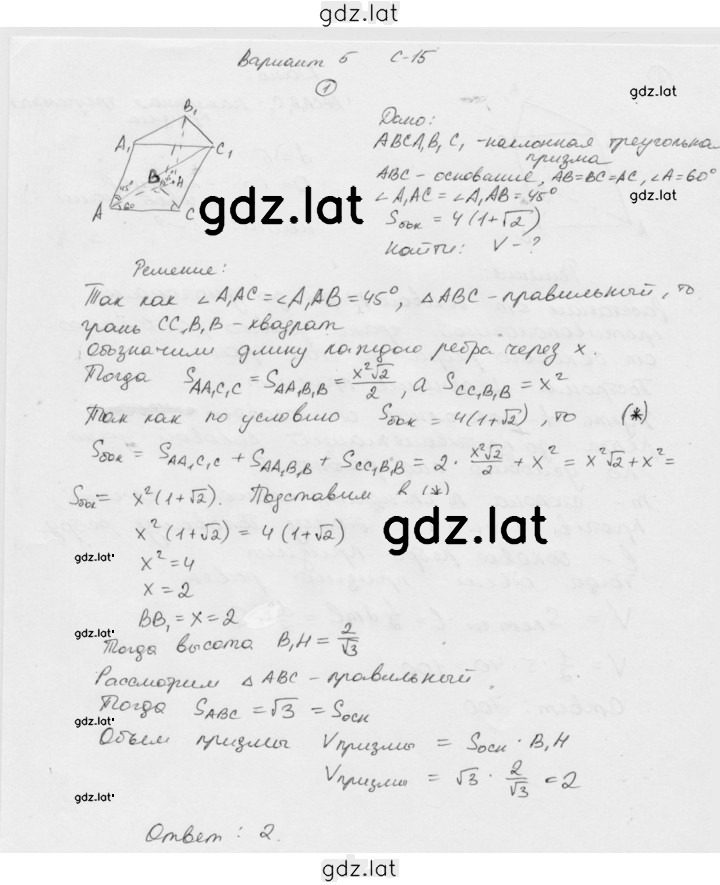 gdz.lat
Вариант 5 С-15
①
gdz.lat
B₁
A₁ C₁
B
45°
H
A 60 C
Дано:
ABCA₁B₁C₁ - наклонная треугольная
призма
ABC - основание, AB=BC=AC, ∠A=60°
∠A₁AC = ∠A₁AB = 45°
gdz.lat
gdz.lat
Sбок = 4(1+√2)
Найти: V-?
Решение:
Так как ∠A₁AC = ∠A₁AB = 45°, △ABC - правильный, то
грань CC₁B₁B - квадрат.
Обозначим длину каждого ребра через x.
Тогда S_AA₁C₁C = S_AA₁B₁B = x²√2/2, а S_CC₁B₁B = x²
Так как по условию Sбок = 4(1+√2), то (*)
Sбок = S_AA₁C₁C + S_AA₁B₁B + S_CC₁B₁B = 2 · x²√2/2 + x² = x²√2 + x² =
Sбок = x²(1+√2). Подставим в (*)
x²(1+√2) = 4(1+√2)
gdz.lat
gdz.lat
x² = 4
x = 2
BB₁ = x = 2
gdz.lat
Тогда высота B₁H = 2/√3
Рассмотрим △ABC - правильный
Тогда S_ABC = √3 = Sосн
gdz.lat
Объем призмы Vпризмы = Sосн · B₁H
Vпризмы = √3 · 2/√3 = 2
gdz.lat
Ответ: 2.
gdz.lat